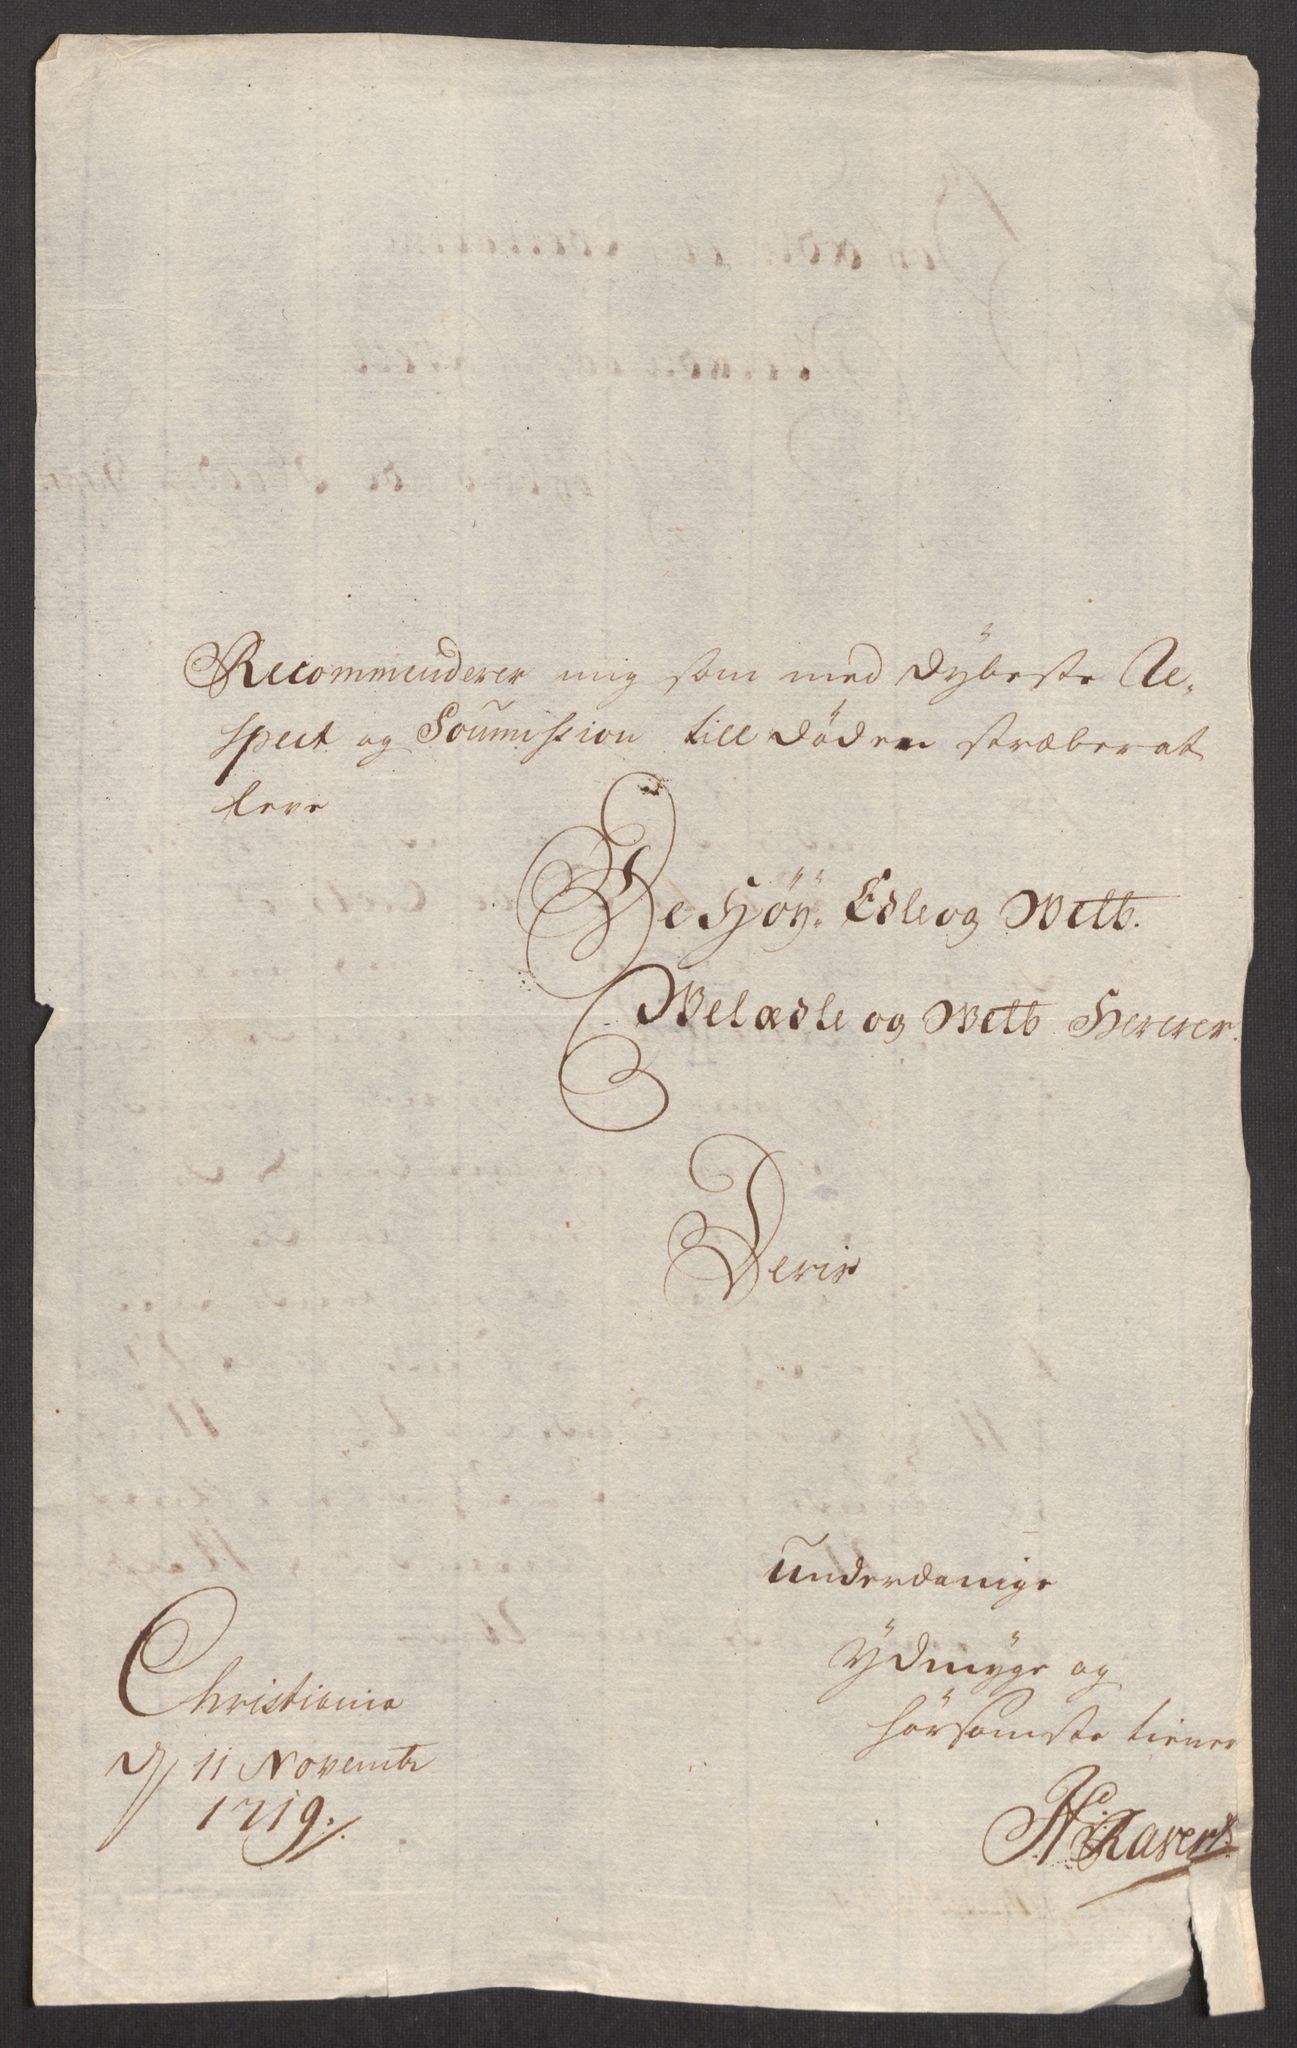 Recommenderer mig som med dÿbeste Re-
spect og Soumission till döden stræber at
leve
De Höÿ-Edle og Welb.
Welædle og Welb Herrer
Deris
underdanige
Ÿdmÿge og
hörsomste tiener
Christiania
d 11 Novembr
1719.